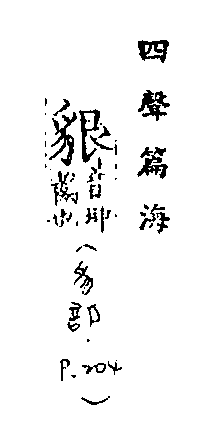 四聲篇海
貇音
也
(豸部.P.204)